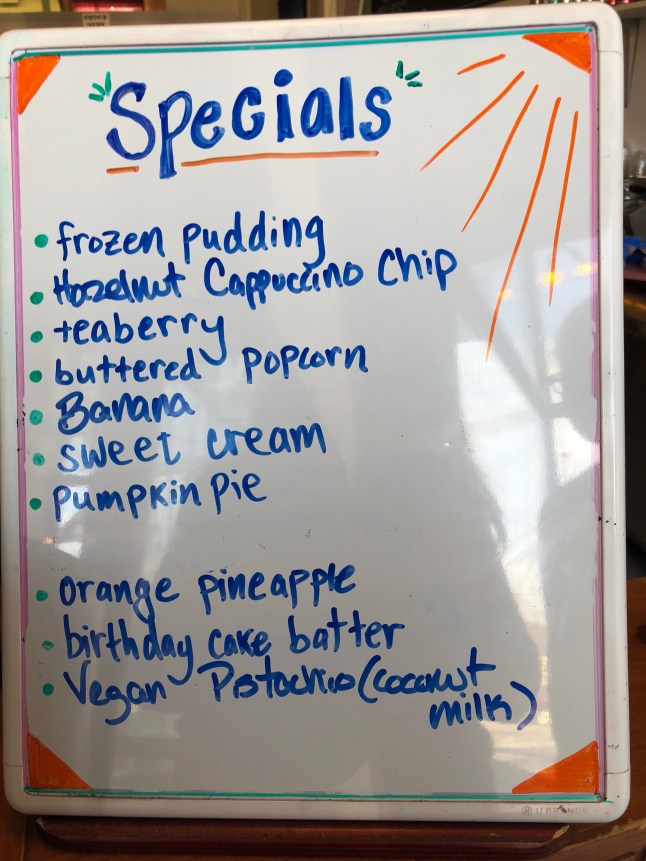 Specials
• frozen pudding
• Hazelnut Cappuccino Chip
• teaberry
• buttered popcorn
• Banana
• sweet cream
• pumpkin pie
• orange pineapple
• birthday cake batter
• Vegan Pistachio (coconut
milk)
U BRANDS